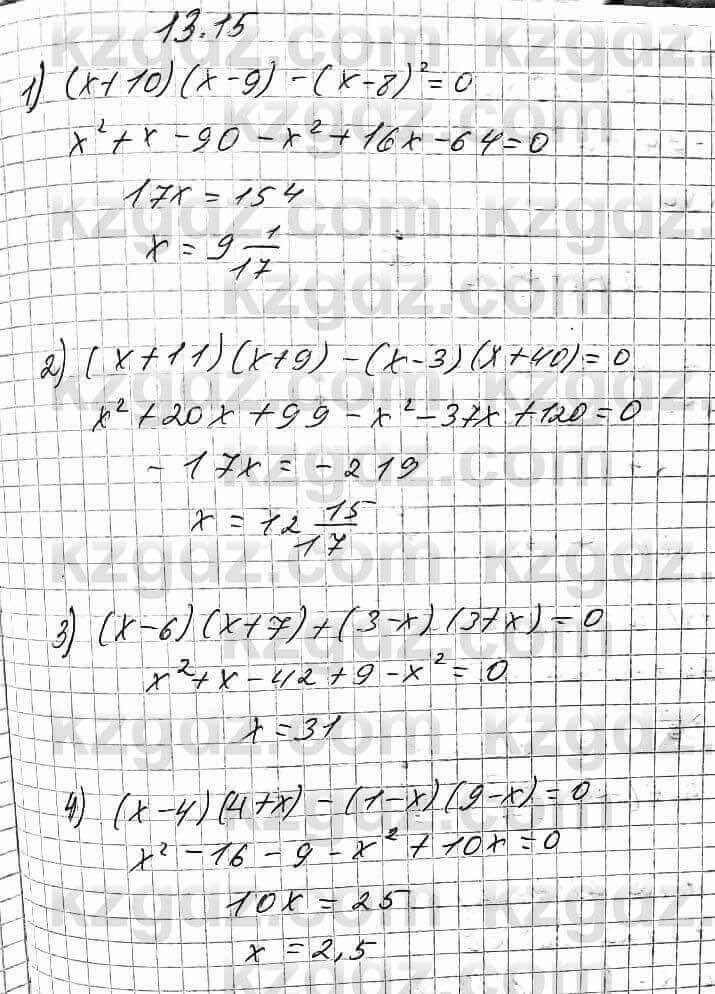 13.15
1) (x+10)(x-9)-(x-8)²=0
x²+x-90-x²+16x-64=0
17x=154
x=9 1/17
2) (x+11)(x+9)-(x-3)(x+40)=0
x²+20x+99-x²-37x+120=0
-17x=-219
x=12 15/17
3) (x-6)(x+7)+(3-x)(3+x)=0
x²+x-42+9-x²=0
x=31
4) (x-4)(4+x)-(1-x)(9-x)=0
x²-16-9-x²+10x=0
10x=25
x=2,5
kzgdz.com